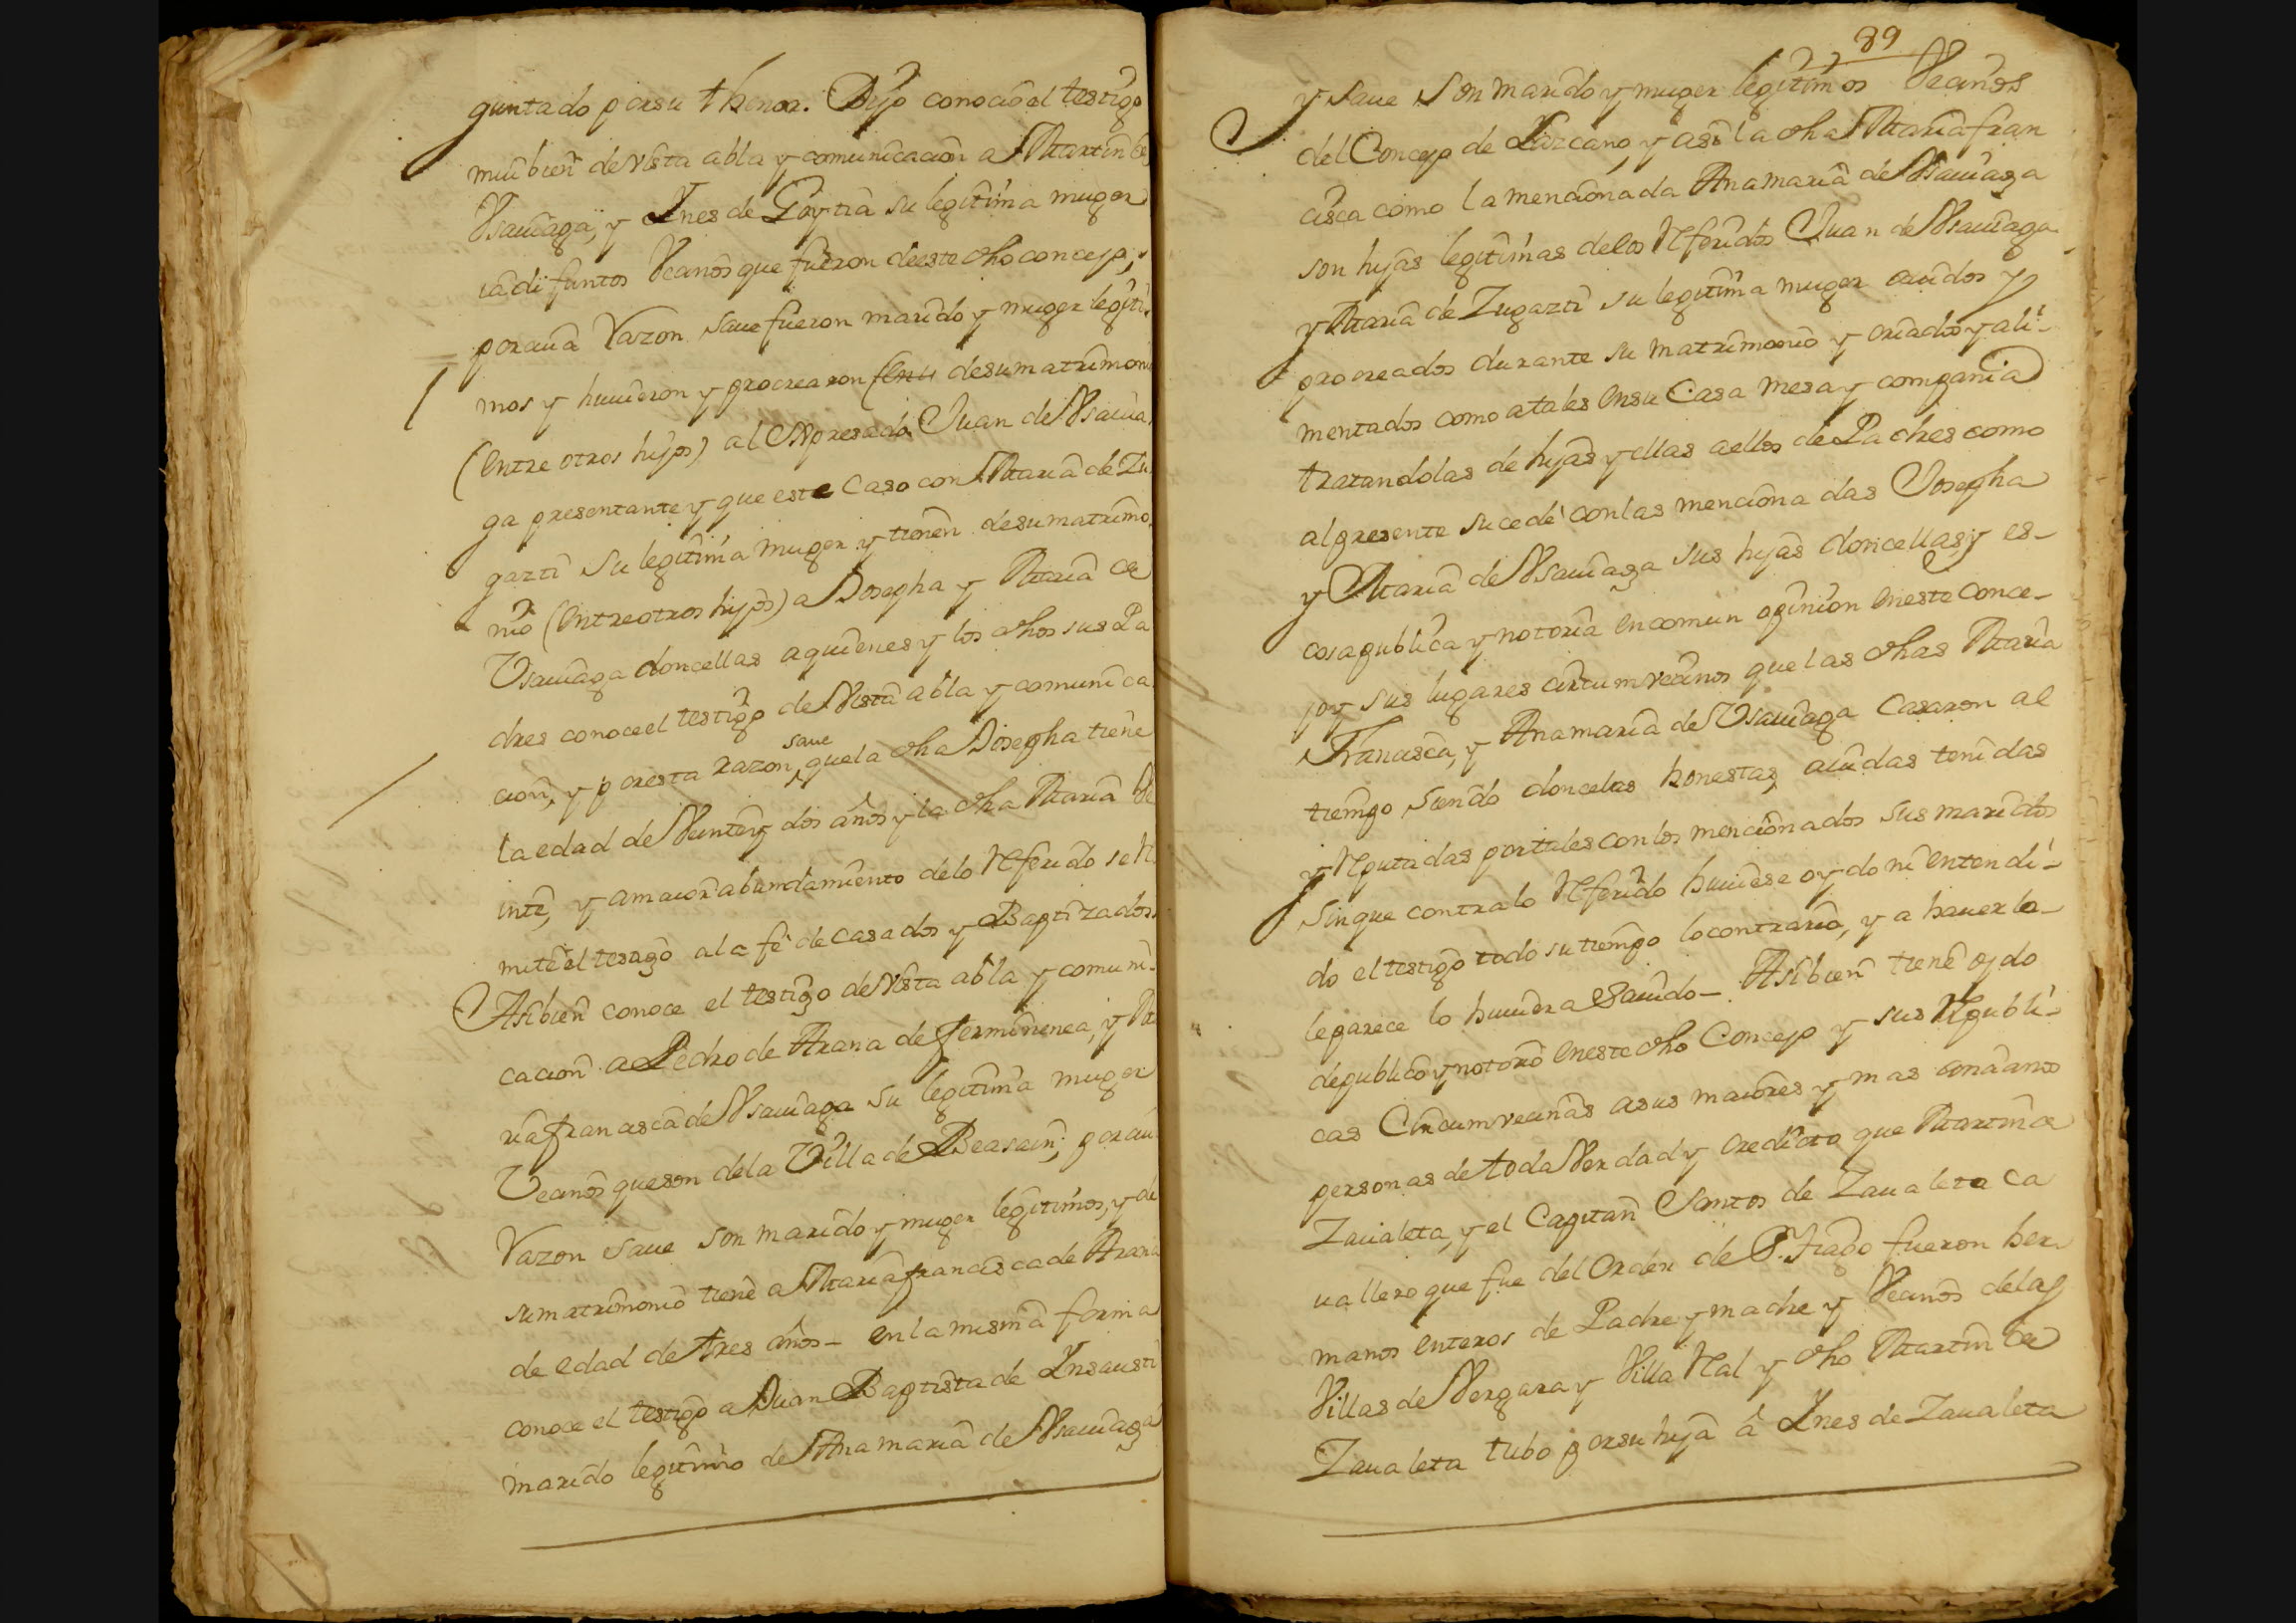 guntado por su thenor. Dijo conocio el testigo
mui bien de vista abla y comunicacion a Martin de
Vsauiaga, y Ynes de Goytia su legitima muger
ia difuntos Vecinos que fueron de este dho concejo, y
por cuia Razon saue fueron marido y muger legiti-
mos y huuieron y procrearon de su matrimonio
(entre otros hijos) al expresado Juan de Vsauia
ga presentante y que este Caso con Maria de Zu
gazti su legitima muger y tienen de su matrimo
nio (entre otros hijos) a Josepha y Maria de
Vsauiaga doncellas a quienes y los dhos sus Pa
dres conoce el testigo de Vista abla y comunica
cion, y por esta razon saue que la dha Josepha tiene
la edad de Veinte y dos años y la dha Maria de
inte, y a maior abundamiento de lo Referido se R
mite el testigo a la fe de casados y Baptizados.
Asibien conoce el testigo de vista abla y comuni-
cacion a Pedro de Arana de ferminenea, y Ma
ria francisca de Vsauiaga su legitima muger
Vecinos que son de la Villa de Beasain; por cui
Razon saue son marido y muger legitimos, y de
su matrimonio tiene a Maria francisca de Arana
de edad de tres años - en la misma forma
conoce el testigo a Juan Baptista de Ynsausti
marido legitimo de Ana maria de Vsauiaga
89
y saue son marido y muger legitimos Vecinos
del Concejo de Lazcano, y asi la dha Maria fran
cisca como la mencionada Ana maria de Vsauiaga
son hijas legitimas de los Referidos Juan de Vsauiaga
y Maria de Zugazti su legitima muger auidos y
procreados durante su matrimonio y criados y ali-
mentados como a tales en su Casa mesa y compania
tratandolas de hijas y ellas a ellos de Padres como
al presente sucede con las mencionadas Josepha
y Maria de Vsauiaga sus hijas doncellas, y es-
cosa publica y notoria en comun opinion en este Conce-
jo y sus lugares circumvecinos que las dhas Maria
Francisca, y Ana maria de Vsauiaga Casaron al
tiempo siendo doncellas honestas, auidas tenidas
y Reputadas por tales con los mencionados sus maridos
sin que contra lo Referido huuiese oydo ni entendi-
do el testigo todo su tiempo lo contrario, y a hauerlo-
le parece lo huuiera Sauido - Asibien tiene oydo
de publico y notorio en este dho Concejo y sus Republi-
cas Circumvecinas a sus maiores y mas ancianos
personas de toda Verdad y credito que Martin de
Zaualeta, y el Capitan Santos de Zaualeta Ca
uallero que fue del Orden de S.Tiago fueron her-
manos enteros de Padre y madre y Vecinos de las
Villas de Vergara y Villa Real y dho Martin de
Zaualeta tubo por su hija á Ynes de Zaualeta